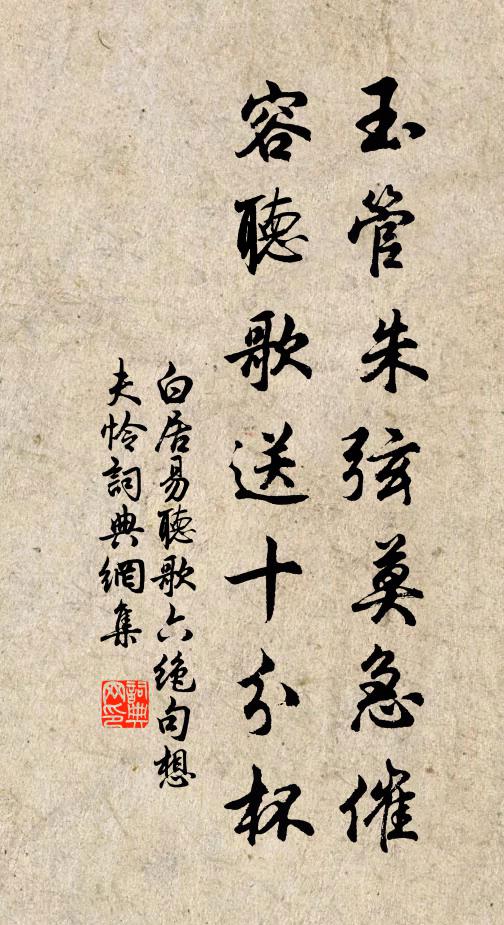 玉管朱弦莫急催
容聽歌送十分杯
白居易聽歌六絕句想
夫怜詞典網集
詞典網印